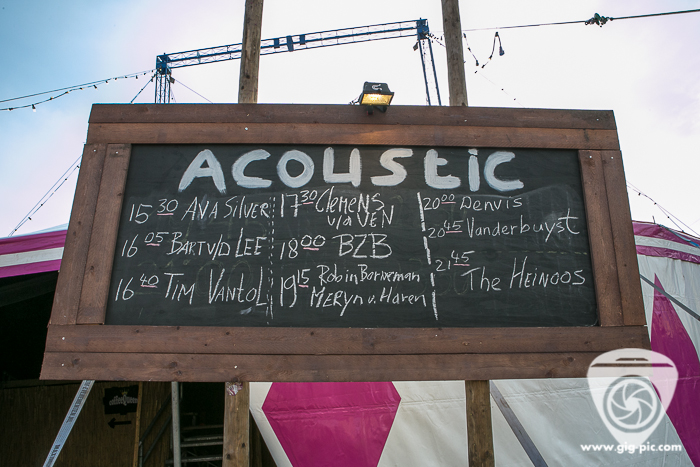 ACOUStiC
15 30 AVA SILVER
16 05 BARTV/D LEE
16 40 TIM VANTOL
17 30 CLEMENS
V/d VEN
18 00 BZB
19 15 Robin Borneman
MERYN v. HAREN
20 00 Denvis
20 45 Vanderbuyst
21 45 The HEINOOS
www.gig-pic.com